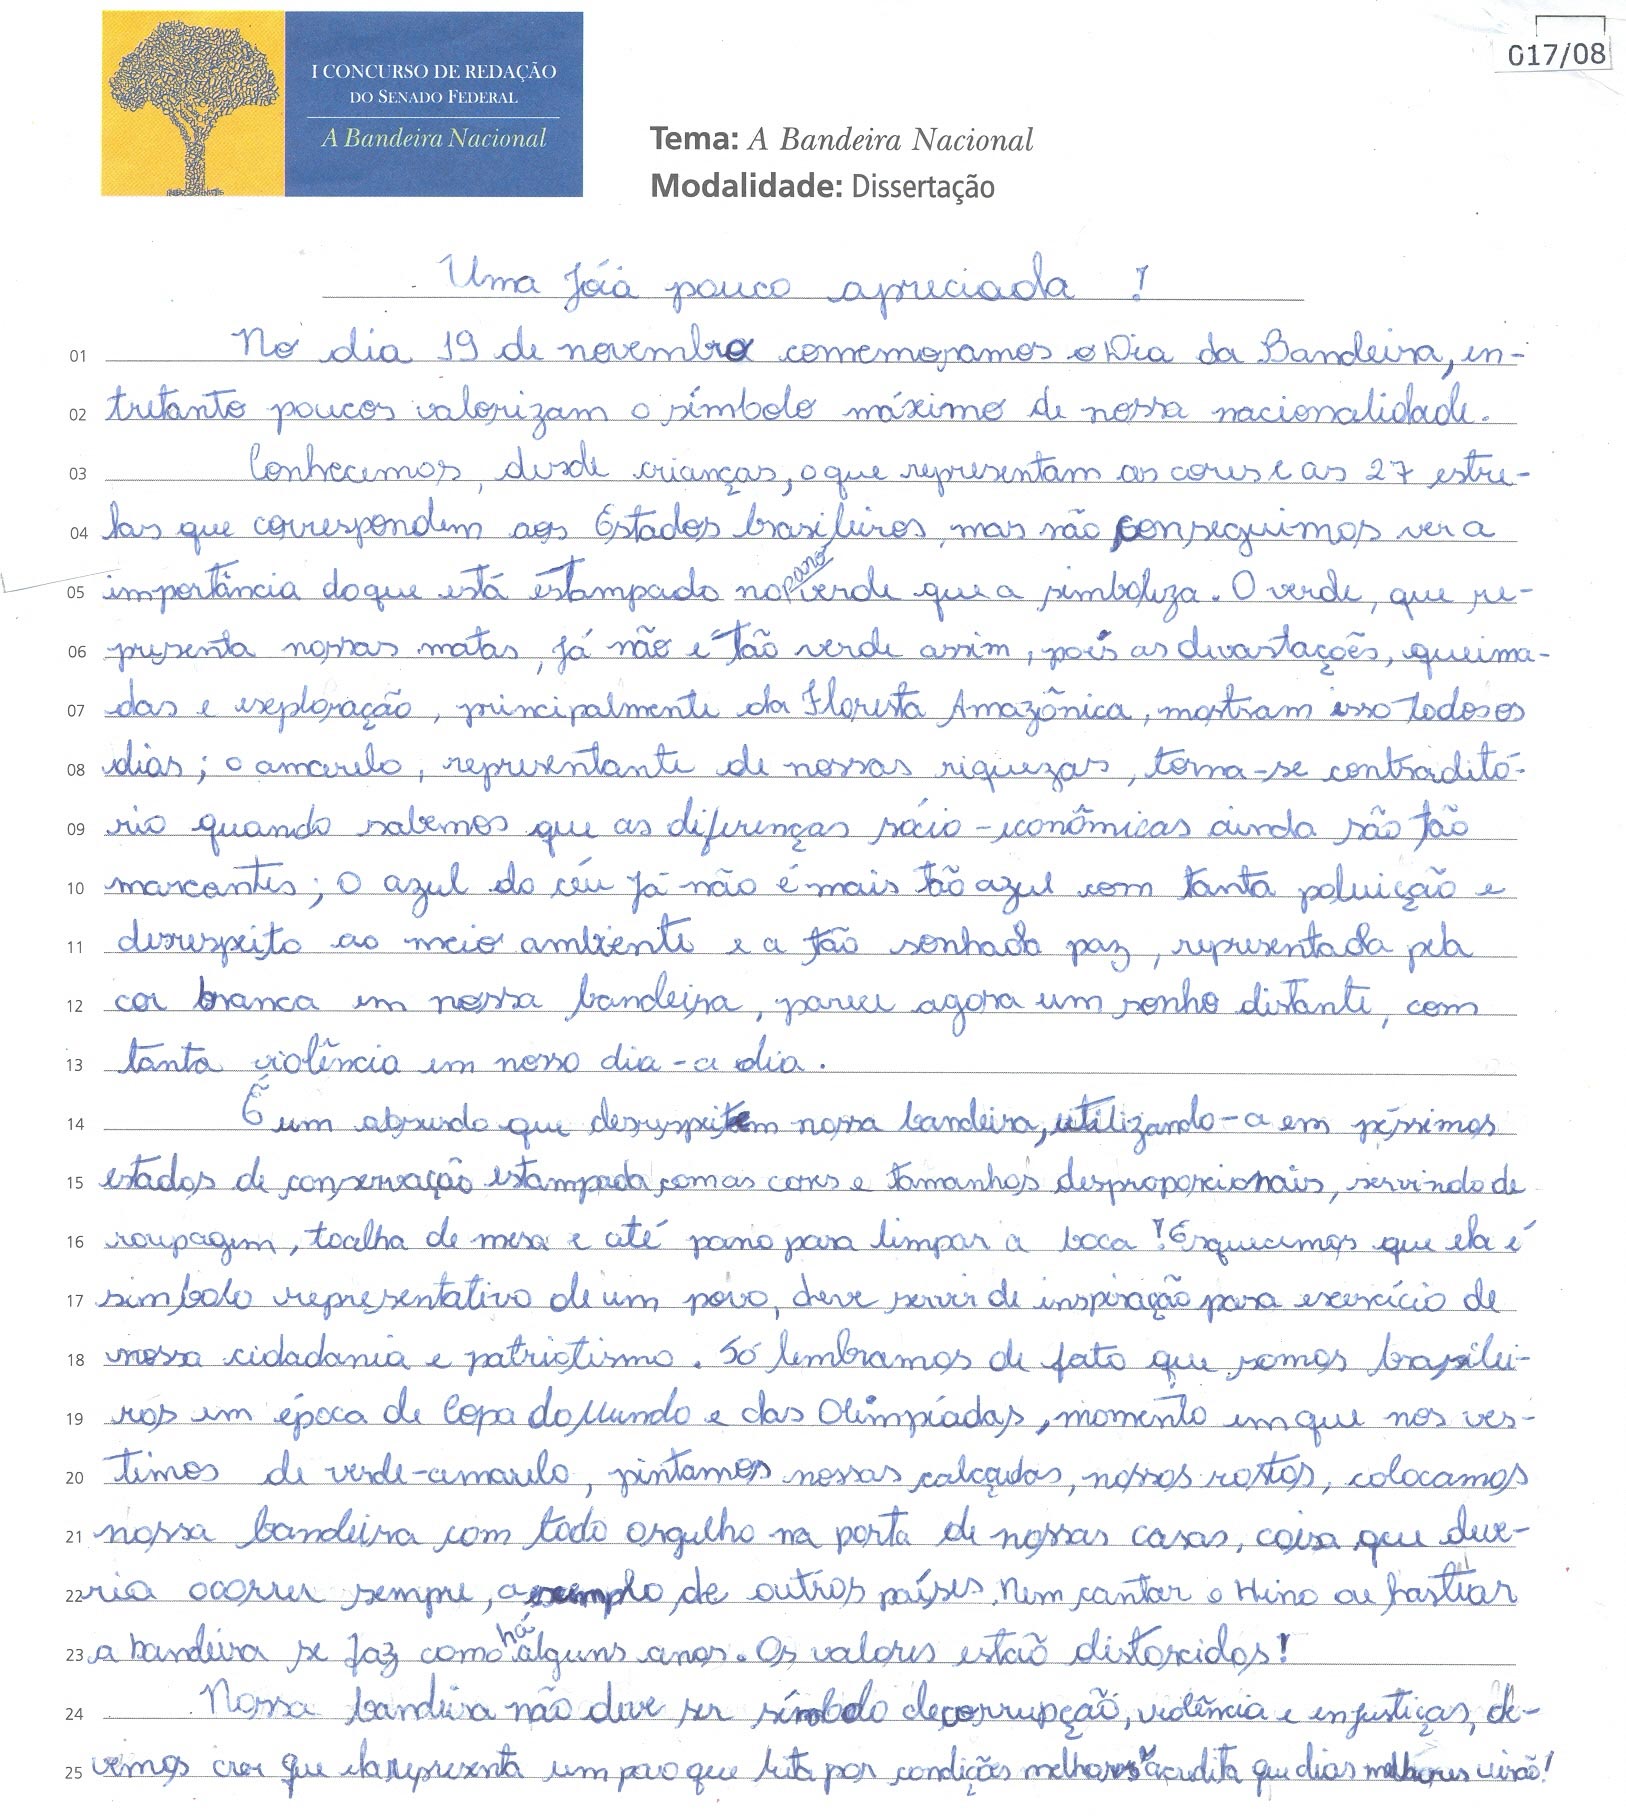 017/08
I CONCURSO DE REDAÇÃO
DO SENADO FEDERAL
A Bandeira Nacional
Tema: A Bandeira Nacional
Modalidade: Dissertação
Uma Jóia pouco apreciada !
01 No dia 19 de novembro comemoramos o Dia da Bandeira, en-
02 tretanto poucos valorizam o símbolo máximo de nossa nacionalidade.
03 Conhecemos, desde crianças, o que representam as cores e as 27 estre-
04 las que correspondem aos Estados brasileiros, mas não conseguimos ver a
05 importância do que está estampado no pano verde que a simboliza. O verde, que re-
06 presenta nossas matas, já não é tão verde assim, pois as devastações, queima-
07 das e exploração, principalmente da Floresta Amazônica, mostram isso todos os
08 dias; o amarelo, representante de nossas riquezas, torna-se contraditó-
09 rio quando sabemos que as diferenças sócio-econômicas ainda são tão
10 marcantes; O azul do céu já não é mais tão azul com tanta poluição e
11 desrespeito ao meio ambiente e a tão sonhada paz, representada pela
12 cor branca em nossa bandeira, parece agora um sonho distante, com
13 tanta violência em nosso dia-a dia.
14 É um absurdo que desrespeitem nossa bandeira, utilizando-a em péssimos
15 estados de conservação estampada com as cores e tamanhos desproporcionais, servindo de
16 roupagem, toalha de mesa e até pano para limpar a boca ! Esquecemos que ela é
17 simbolo representativo de um povo, deve servir de inspiração para exercício de
18 nossa cidadania e patriotismo. Só lembramos de fato que somos brasilei-
19 ros em época de Copa do Mundo e das Olimpíadas, momento em que nos ves-
20 timos de verde-amarelo, pintamos nossas calçadas, nossos rostos, colocamos
21 nossa bandeira com todo orgulho na porta de nossas casas, coisa que deve-
22 ria ocorrer sempre, a exemplo de outros países. Nem cantar o Hino ou hastear
23 a bandeira se faz como há alguns anos. Os valores estão distorcidos!
24 Nossa bandeira não deve ser símbolo de corrupção, violência e injustiças, de-
25 vemos crer que ela representa um povo que luta por condições melhores e acredita que dias melhores virão!